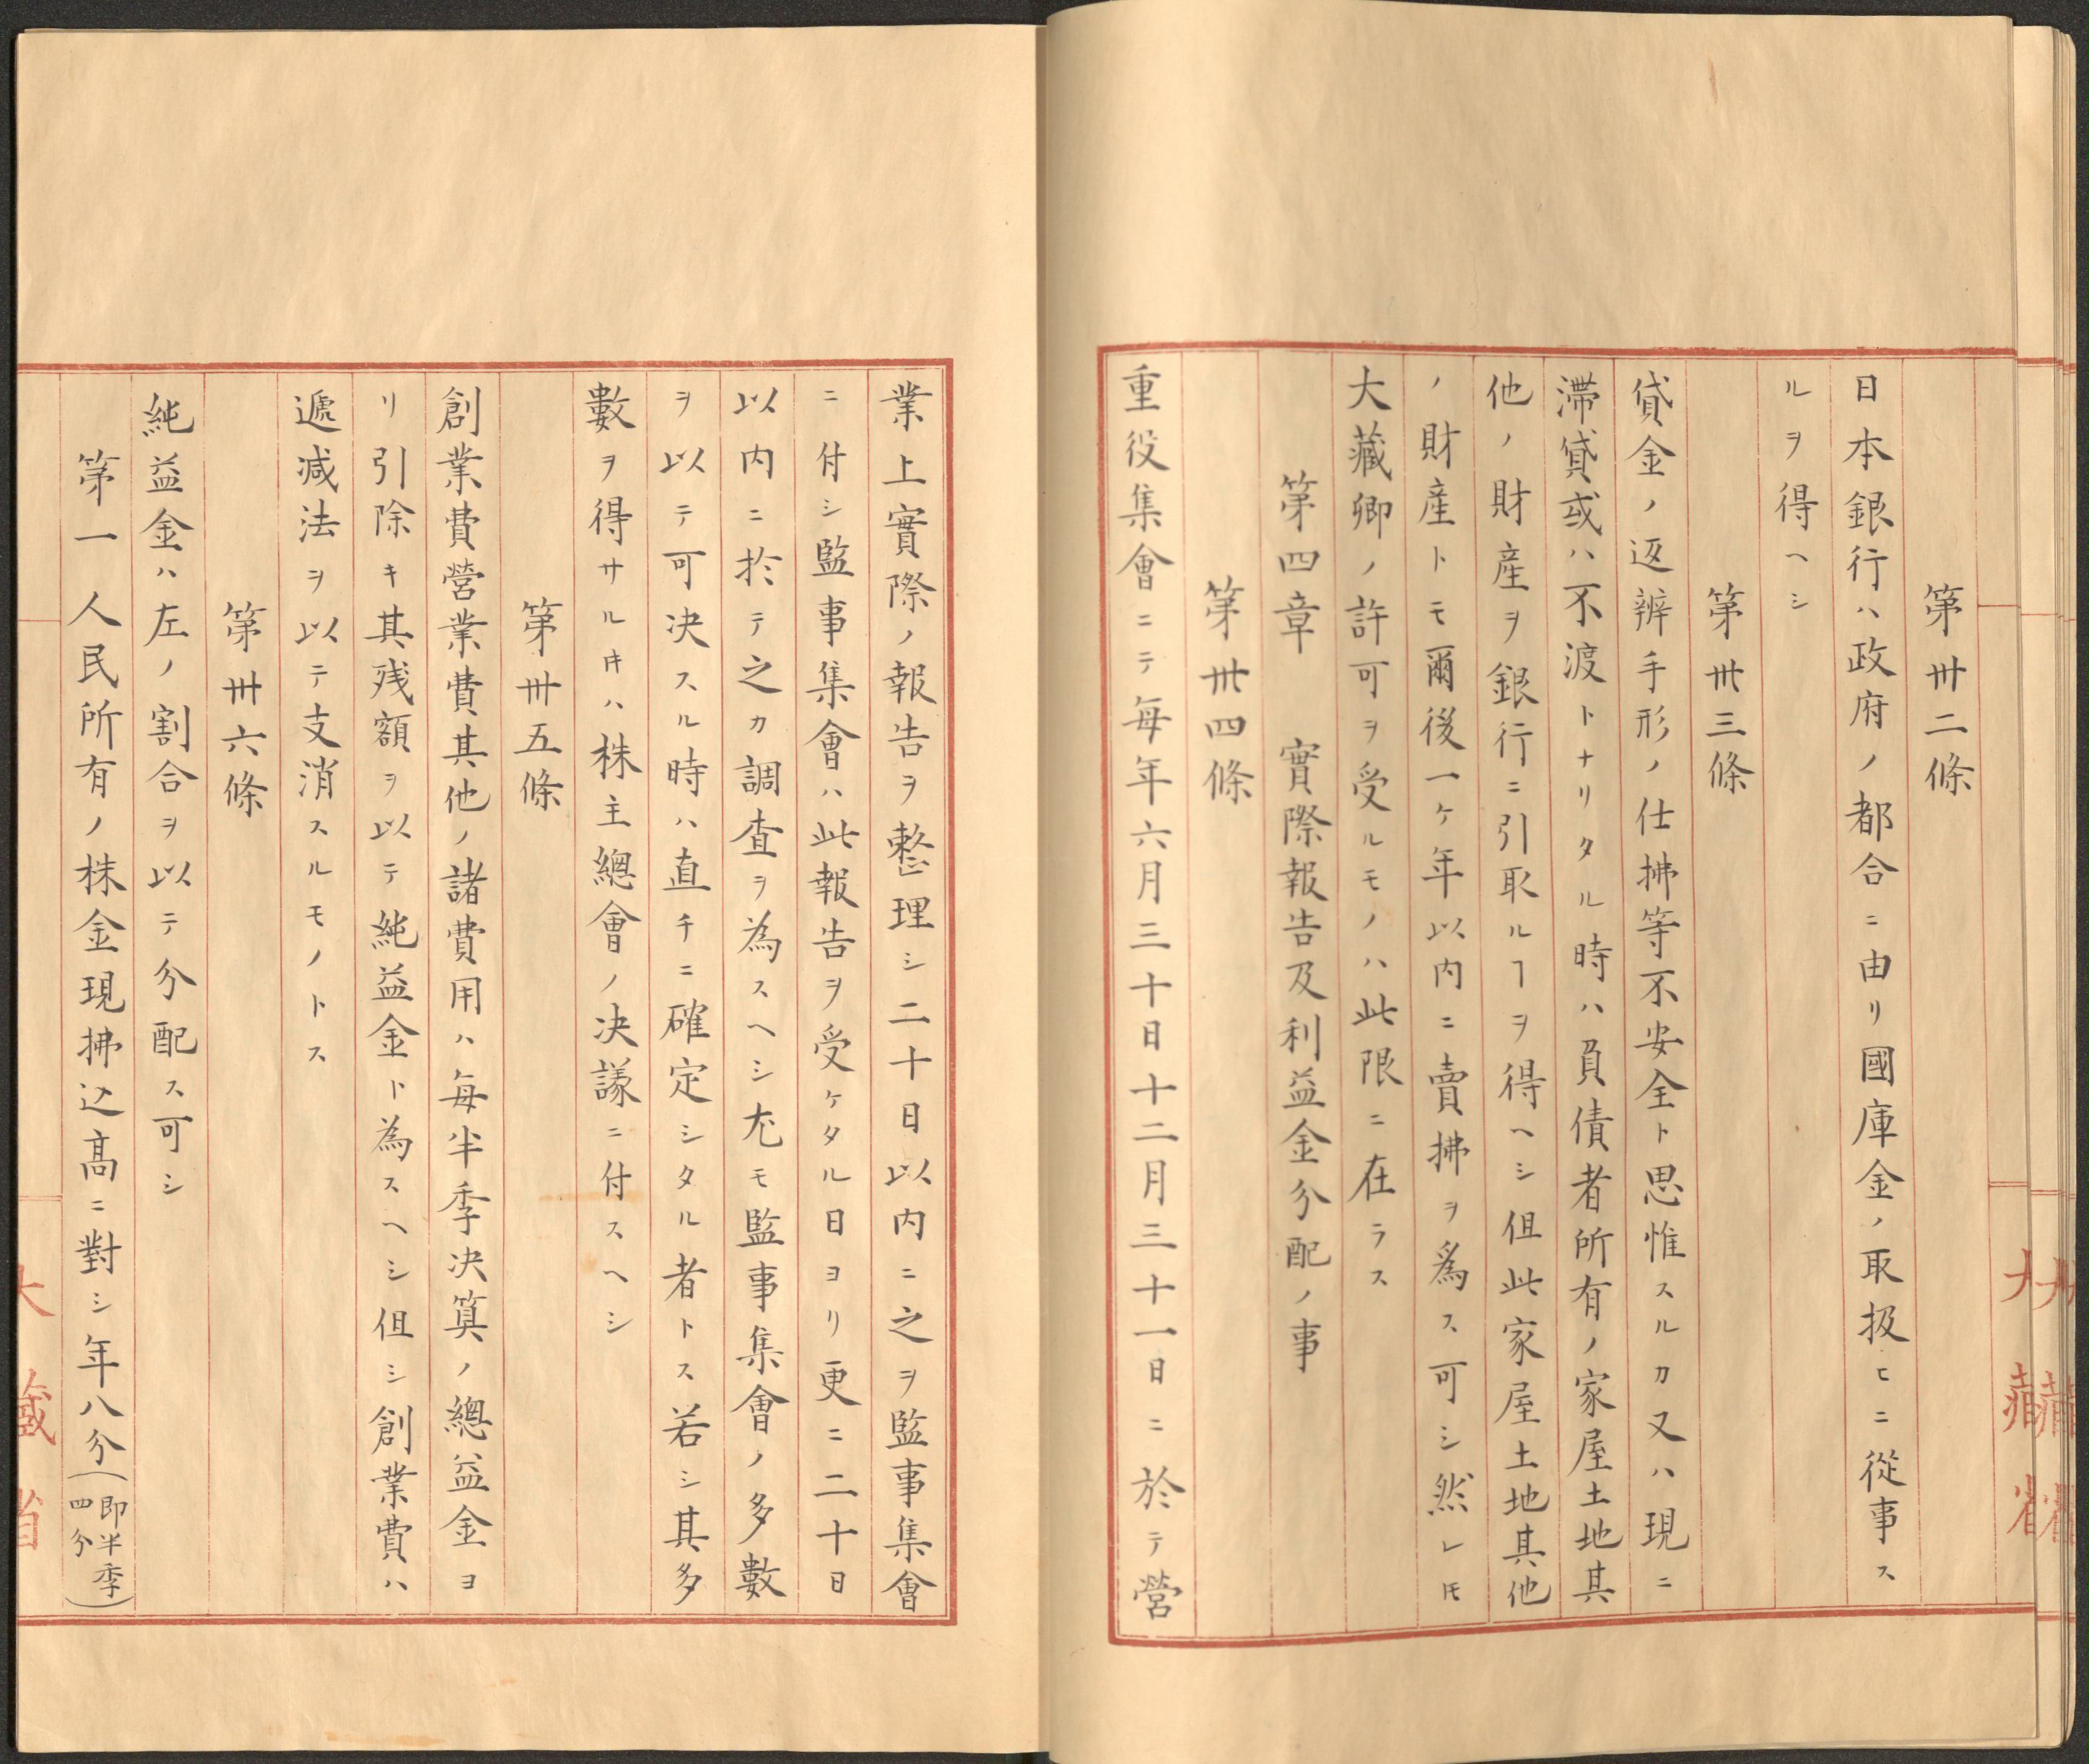 第卅二條
日本銀行ハ政府ノ都合ニ由リ國庫金ノ取扱ヒニ從事ス
ルヲ得ヘシ
第卅三條
貸金ノ返辨手形ノ仕拂等不安全ト思惟スルカ又ハ現ニ
滯貸或ハ不渡トナリタル時ハ負債者所有ノ家屋土地其
他ノ財産ヲ銀行ニ引取ルヿヲ得ヘシ但此家屋土地其他
ノ財産トモ爾後一ケ年以内ニ賣拂ヲ爲ス可シ然レ𪜈
大藏卿ノ許可ヲ受ルモノハ此限ニ在ラス
第四章 實際報告及利益金分配ノ事
第卅四條
重役集會ニテ毎年六月三十日十二月三十一日ニ於テ營
業上實際ノ報告ヲ整理シ二十日以内ニ之ヲ監事集會
ニ付シ監事集會ハ此報告ヲ受ケタル日ヨリ更ニ二十日
以内ニ於テ之カ調査ヲ為スヘシ尤モ監事集會ノ多數
ヲ以テ可决スル時ハ直チニ確定シタル者トス若シ其多
數ヲ得サルキハ株主總會ノ决議ニ付スヘシ
第卅五條
創業費營業費其他ノ諸費用ハ毎半季决算ノ總益金ヨ
リ引除キ其残額ヲ以テ純益金ト為スヘシ但シ創業費ハ
遞减法ヲ以テ支消スルモノトス
第卅六條
純益金ハ左ノ割合ヲ以テ分配ス可シ
第一 人民所有ノ株金現拂込高ニ對シ年八分(即半季四分)
大藏省
大藏省
大藏省